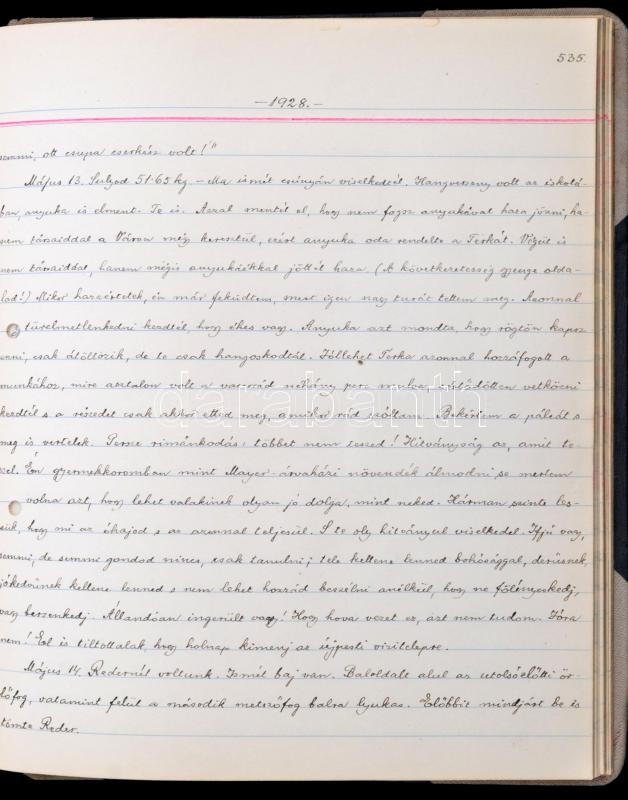 535.
—1928.—
semmi, ott csupa cserkész volt!"
Május 13. Sulyod 51·65 kg. — Ma ismét csúnyán viselkedtél. Hangverseny volt az iskolá-
ban, anyuka is elment. Te is. Azzal mentél el, hogy nem fogsz anyukával haza jönni, ha-
nem társaiddal a Város még keresztül, ezért anyuka oda rendelte a Terkát. Végül is
nem társaiddal, hanem mégis anyukáékkal jöttél haza. (A következetesség gyenge olda-
lad!) Mikor hazaértetek, én már feküdtem, mert igen nagy turát tettem meg. Azonnal
türelmetlenkedni kezdtél, hogy éhes vagy. Anyuka azt mondta, hogy rögtön kapsz
enni, csak átöltözik, de te csak hangoskodtál. Jóllehet Terka azonnal hozzáfogott a
munkához, mire asztalon volt a vacsorád néhány perc mulva, vetkőzni
kezdtél s a részedet csak akkor etted meg, amikor rád szóltam. Bekértem a pálcát s
meg is vertelek. Persze rimánkodás: többet nem teszed! Hitványság az, amit te-
szel. Én gyermekkoromban mint Mayer-árvaházi növendék álmodni se mertem
volna azt, hogy lehet valakinek olyan jó dolga, mint neked. Hárman szinte les-
sük, hogy mi az óhajod s az azonnal teljesül. S te oly hitványul viselkedel. Ifjú vagy,
semmi, de semmi gondod nincs, csak tanulni; tele kellene lenned bohósággal, derüsnek,
jókedvünek kellene lenned s nem lehet hozzád beszélni anélkül, hogy ne fölényeskedj,
vagy berzenkedj. Állandóan ingerült vagy! Hogy hova vezet ez, azt nem tudom. Jóra
nem! El is tiltottalak, hogy holnap kimenj az újpesti vizitelepre.
Május 14. Redernél voltunk. Ismét baj van. Baloldalt alul az utolsóelőtti őr-
lőfog, valamint felül a második metszőfog balra lyukas. Előbbit mindjárt be is
tömte Reder.
darabanth